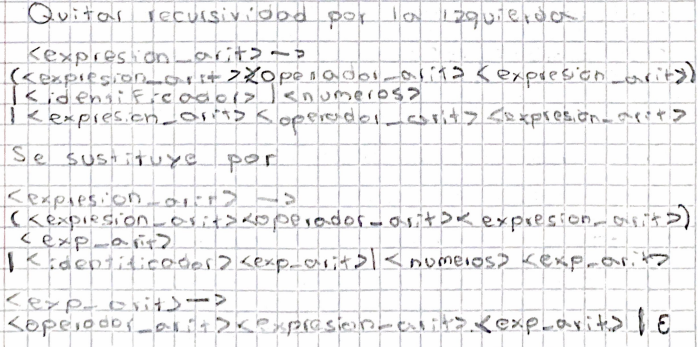 Quitar recursividad por la izquierda
<expresion_arit> —>
(<expresion_arit><operador_arit><expresion_arit>)
|<identificador>|<numeros>
|<expresion_arit><operador_arit><expresion_arit>
Se sustituye por
<expresion_arit> —>
(<expresion_arit><operador_arit><expresion_arit>)
<exp_arit>
|<identificador><exp_arit>|<numeros><exp_arit>
<exp_arit>—>
<operador_arit><expresion_arit><exp_arit>|ε